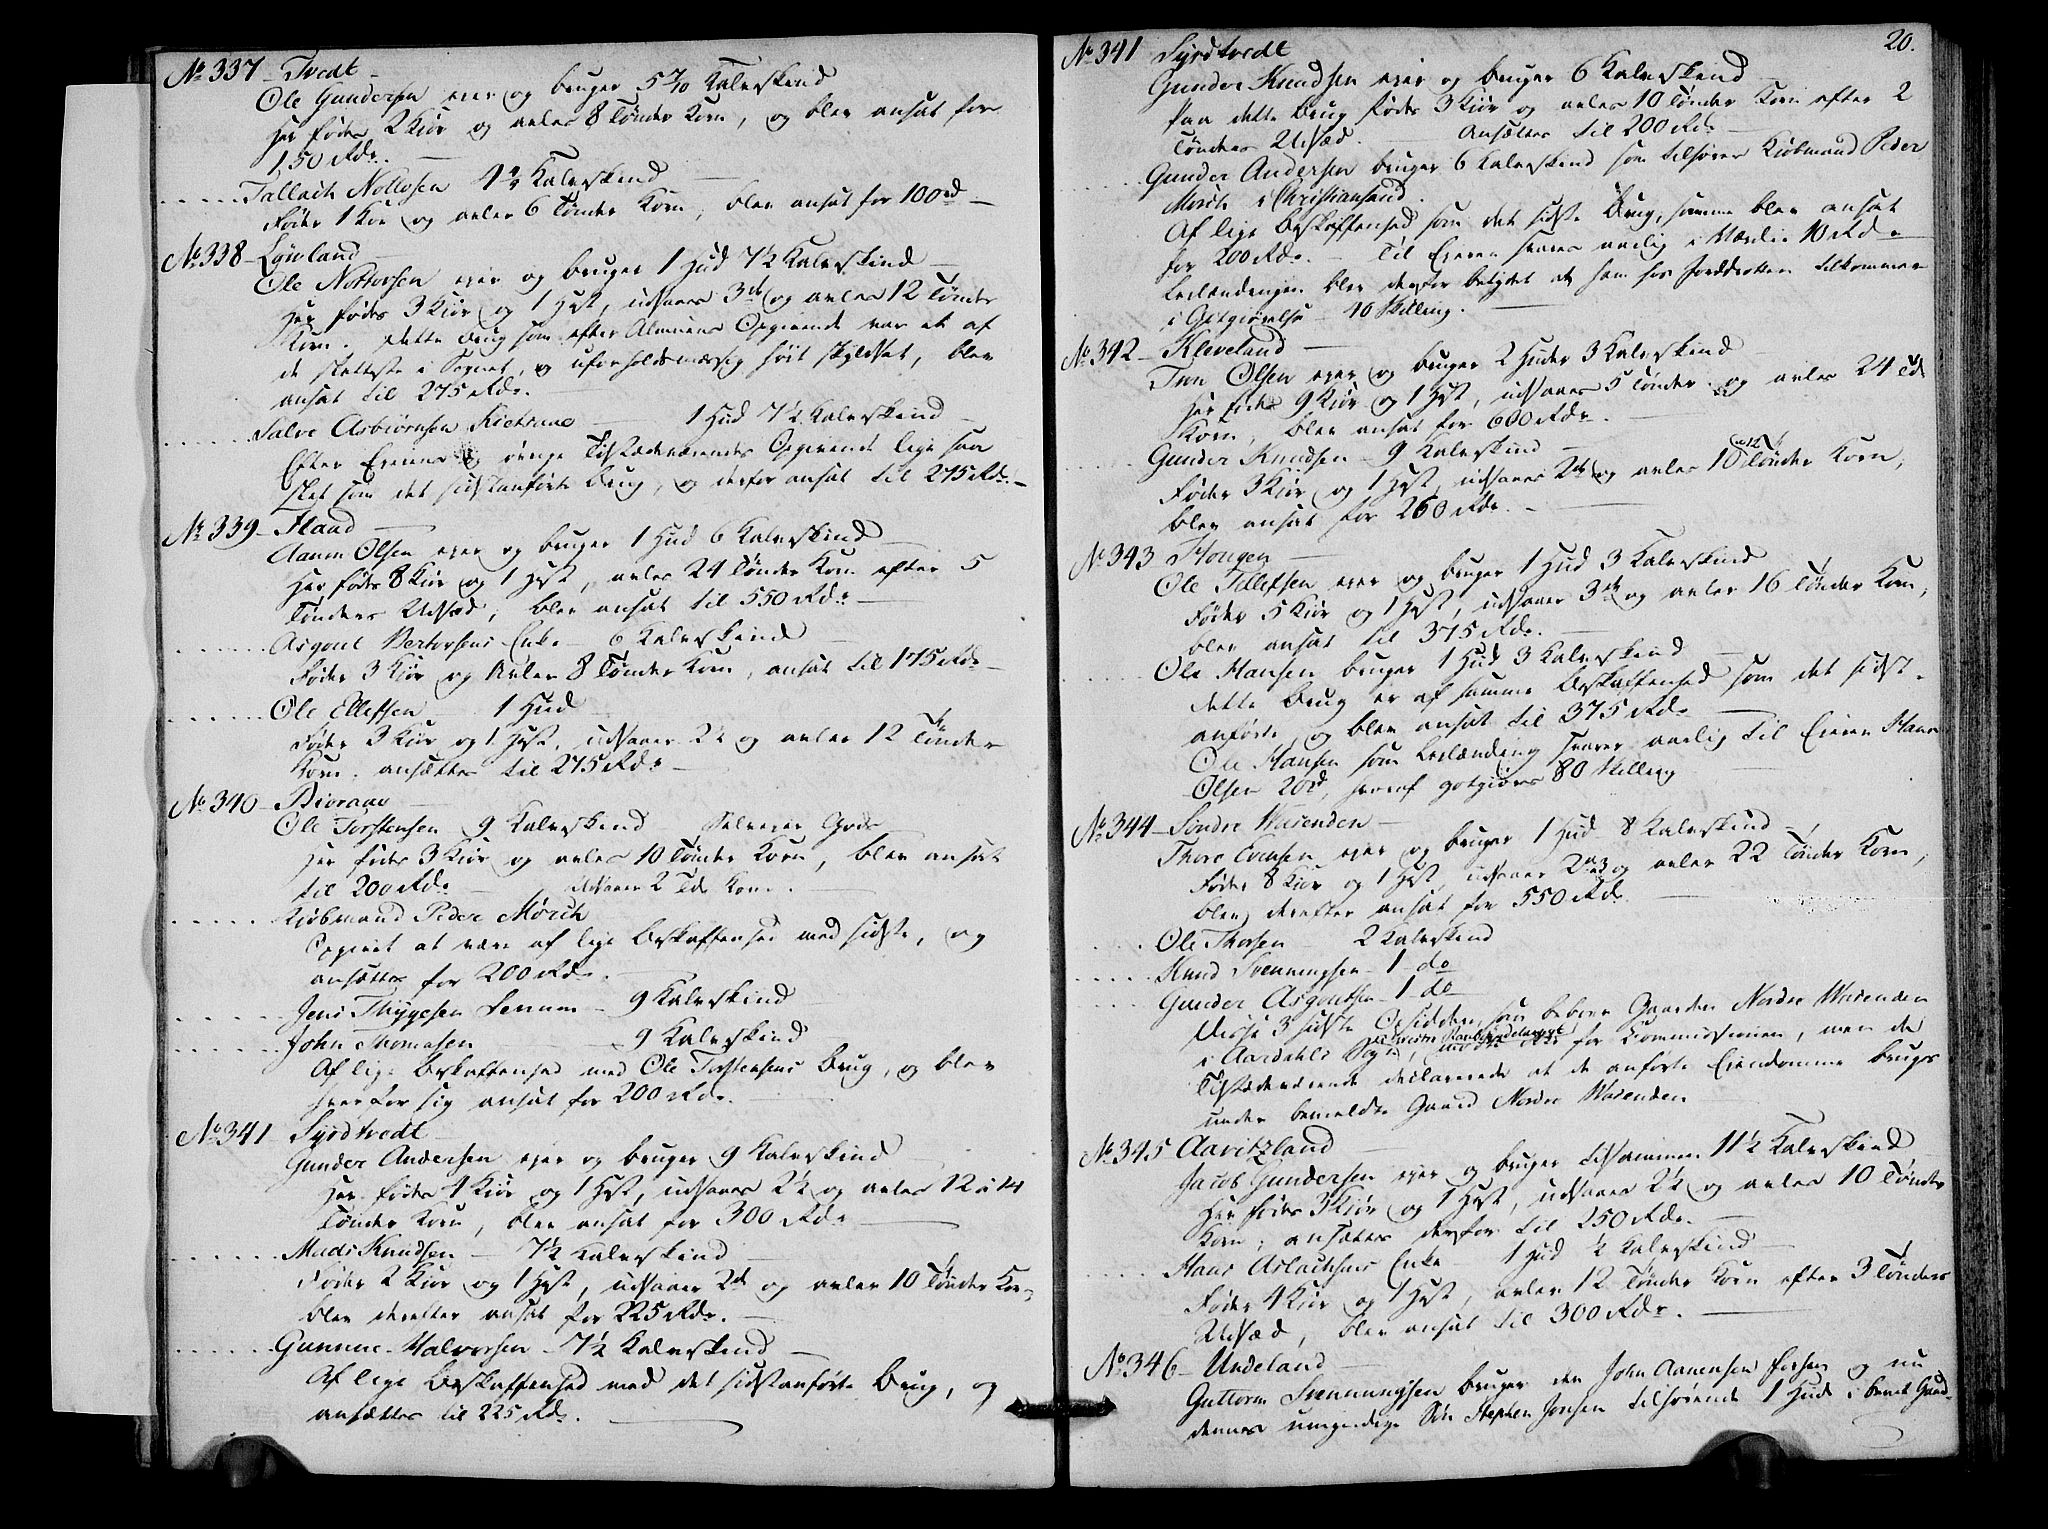 No 337 - Tvedt -
Ole Gundersen ejer og bruger 5 7/10 Kalvskind
Her fødes 2 Kiør og avles 8 Tønder Korn, og blev ansat for
150 Rdr. -
Tallach Nottosen 4 Kalvskind
Føder 1 Koe og avler 6 Tønder Korn, blev ansat for 100rd -
No 338 - Løwland -
Ole Nottorsen ejer og bruger 1 Hud 7½ Kalvskind -
Her fødes 3 Kiør og 1 Hest, udsaaes 3td og avles 12 Tønder
Korn. Dette Brug som efter Almuens Opgivende var et af
de sletteste i Sognet, og uforholdsmæssig høit skyldsat, blev
ansat til 275 Rdr.
Salve Asbiørnsen Kietrane - 1 Hud 7½ Kalvskind -
Efter Eierens og øvrige Tilstædeværendes Opgivende lige saa
slet som det sidstanførte Brug, og derfor ansat til 275 Rdr. -
No 339 - Flaad -
Aanen Olsen ejer og bruger 1 Hud 6 Kalvskind -
Her fødes 8 Kiør og 1 Hest, avles 24 Tønder Korn efter 5
Tønders Udsæd, blev ansat til 550 Rdr -
Asgout Vertorsens Enke - 6 Kalvskind -
Føder 3 Kiør og Avler 8 Tønder Korn, ansat til 175 Rdr -
Ole Ellefsen 1 Hud
Føder 3 Kiør og 1 Hest, udsaaer 2½ og avler 12 Tønder
Korn, ansættes til 275 Rdr -
No 340 - Biorane -
Ole Torstensen 9 Kalvskind Selveier Gods -
Her fødes 3 Kiør og avles 10 Tønder Korn, blev ansat
til 200 Rdr - Udsaaer 2 Td Korn. -
Kiøbmand Peder Mørch
Opgivet at være af lige Beskaffenhed med sidste, og
ansættes for 200 Rdr. -
Jens Thygesen Lennum - 9 Kalvskind -
John Thomasen 9 Kalvskind
Af lige Beskaffenhed med Ole Torstensens Brug, og blev
hver for sig ansat for 200 Rdr.
No 341 - Syrdtvedt -
Gunder Andersen ejer og bruger 9 Kalvskind -
Her fødes 4 Kiør og 1 Hest, udsaaes 2½ og avles 12 à 14
Tønder Korn, blev ansat for 300 Rdr -
Mads Knudsen - 7½ Kalvskind -
Føder 2 Kiør og 1 Hest, udsaaer 2td og avler 10 Tønder Korn
blev derefter ansat for 225 Rdr. -
Gunnue Halvorsen - 7½ Kalvskind -
Af lige Beskaffenhed med det sidstanførte Brug, og
ansættes til 225 Rdr. -
20.
No 341 Syrdtvedt
Gunder Knudsen ejer og bruger 6 Kalvskind -
Paa dette Brug fødes 3 Kiør og avles 10 Tønder Korn efter 2
Tønders Udsæd. - Ansættes til 200 Rdr -
Gunder Andersen bruger 6 Kalvskind som tilhører Kiøbmand Peder
Mørch i Christiansand.
Af lige Beskaffenhed som det sidste Brug, samme blev ansat
for 200 Rdr. - Til Eieren svares aarlig i Værdie 10 Rd -
Leilændingen blev derfor betydet at ham hos Jorddrotten tilkommer
i Godtgiørelse - 40 Skilling. -
No 342 - Kleveland -
Tron Olsen ejer og bruger 2 Huder 3 Kalvskind
Her fødes 9 Kiør og 1 Hest, udsaaes 5 Tønder og avles 24 Td
Korn, blev ansat for 600 Rdr. -
Gunder Knudsen - 9 Kalvskind -
Føder 3 Kiør og 1 Hest, udsaaer 2td og avler 10 à 12 Tønder Korn,
blev ansat for 260 Rdr. -
No 343 Hougen -
Ole Tellefsen ejer og bruger 1 Hud 3 Kalvskind
Føder 5 Kiør og 1 Hest, udsaaer 3td og avler 16 Tønder Korn,
blev ansat til 375 Rdr. -
Ole Hansen bruger 1 Hud 3 Kalvskind -
dette Brug er af samme Beskaffenhed som det sidst-
anførte, og blev ansat til 375 Rdr -
Ole Hansen som Leilænding svarer aarlig til Eieren Hans
Olsen 20rd, hvoraf godtgiøres 80 Skilling -
No 344 - Søndre Warenden -
Thore Evensen ejer og bruger 1 Hud 8 Kalvskind -
Føder 8 Kiør og 1 Hest, udsaaer 2 à 3 og avler 22 Tønder Korn,
blev derefter ansat for 550 Rdr. -
Ole Thorsen 2 Kalvskind
Knud Svenningsen - 1 - do
Gunder Asgoutsen - 1 - do
Disse 3 sidste Opsiddere, som beboer Gaarden Nordre Warenden
i Aardahls Sogn, mødte for Commissionen, men de
Tilstædeværende declarerede at de anførte Eiendomme bruges
under bemeldte Gaard Nordre Warenden
No 345 Aavitzland -
Jacob Gundersen ejer og bruger tilsammen 11½ Kalvskind -
Her fødes 3 Kiør og 1 Hest, udsaaes 2½ og avles 10 Tønder
Korn; ansættes derfor til 250 Rdr. -
Haar Aslachsens Enke 1 Hud ½ Kalvskind -
Føder 4 Kiør og 1 Hest, avler 12 Tønder Korn efter 3 Tønders
Udsæd, blev ansat til 300 Rdr. -
No 346 - Undeland -
Guttorm Svennungsen bruger den John Aanensen og nu
dennes umyndige Søn Stephen Jonsen tilhørende 1 Hud i bemt Gaard